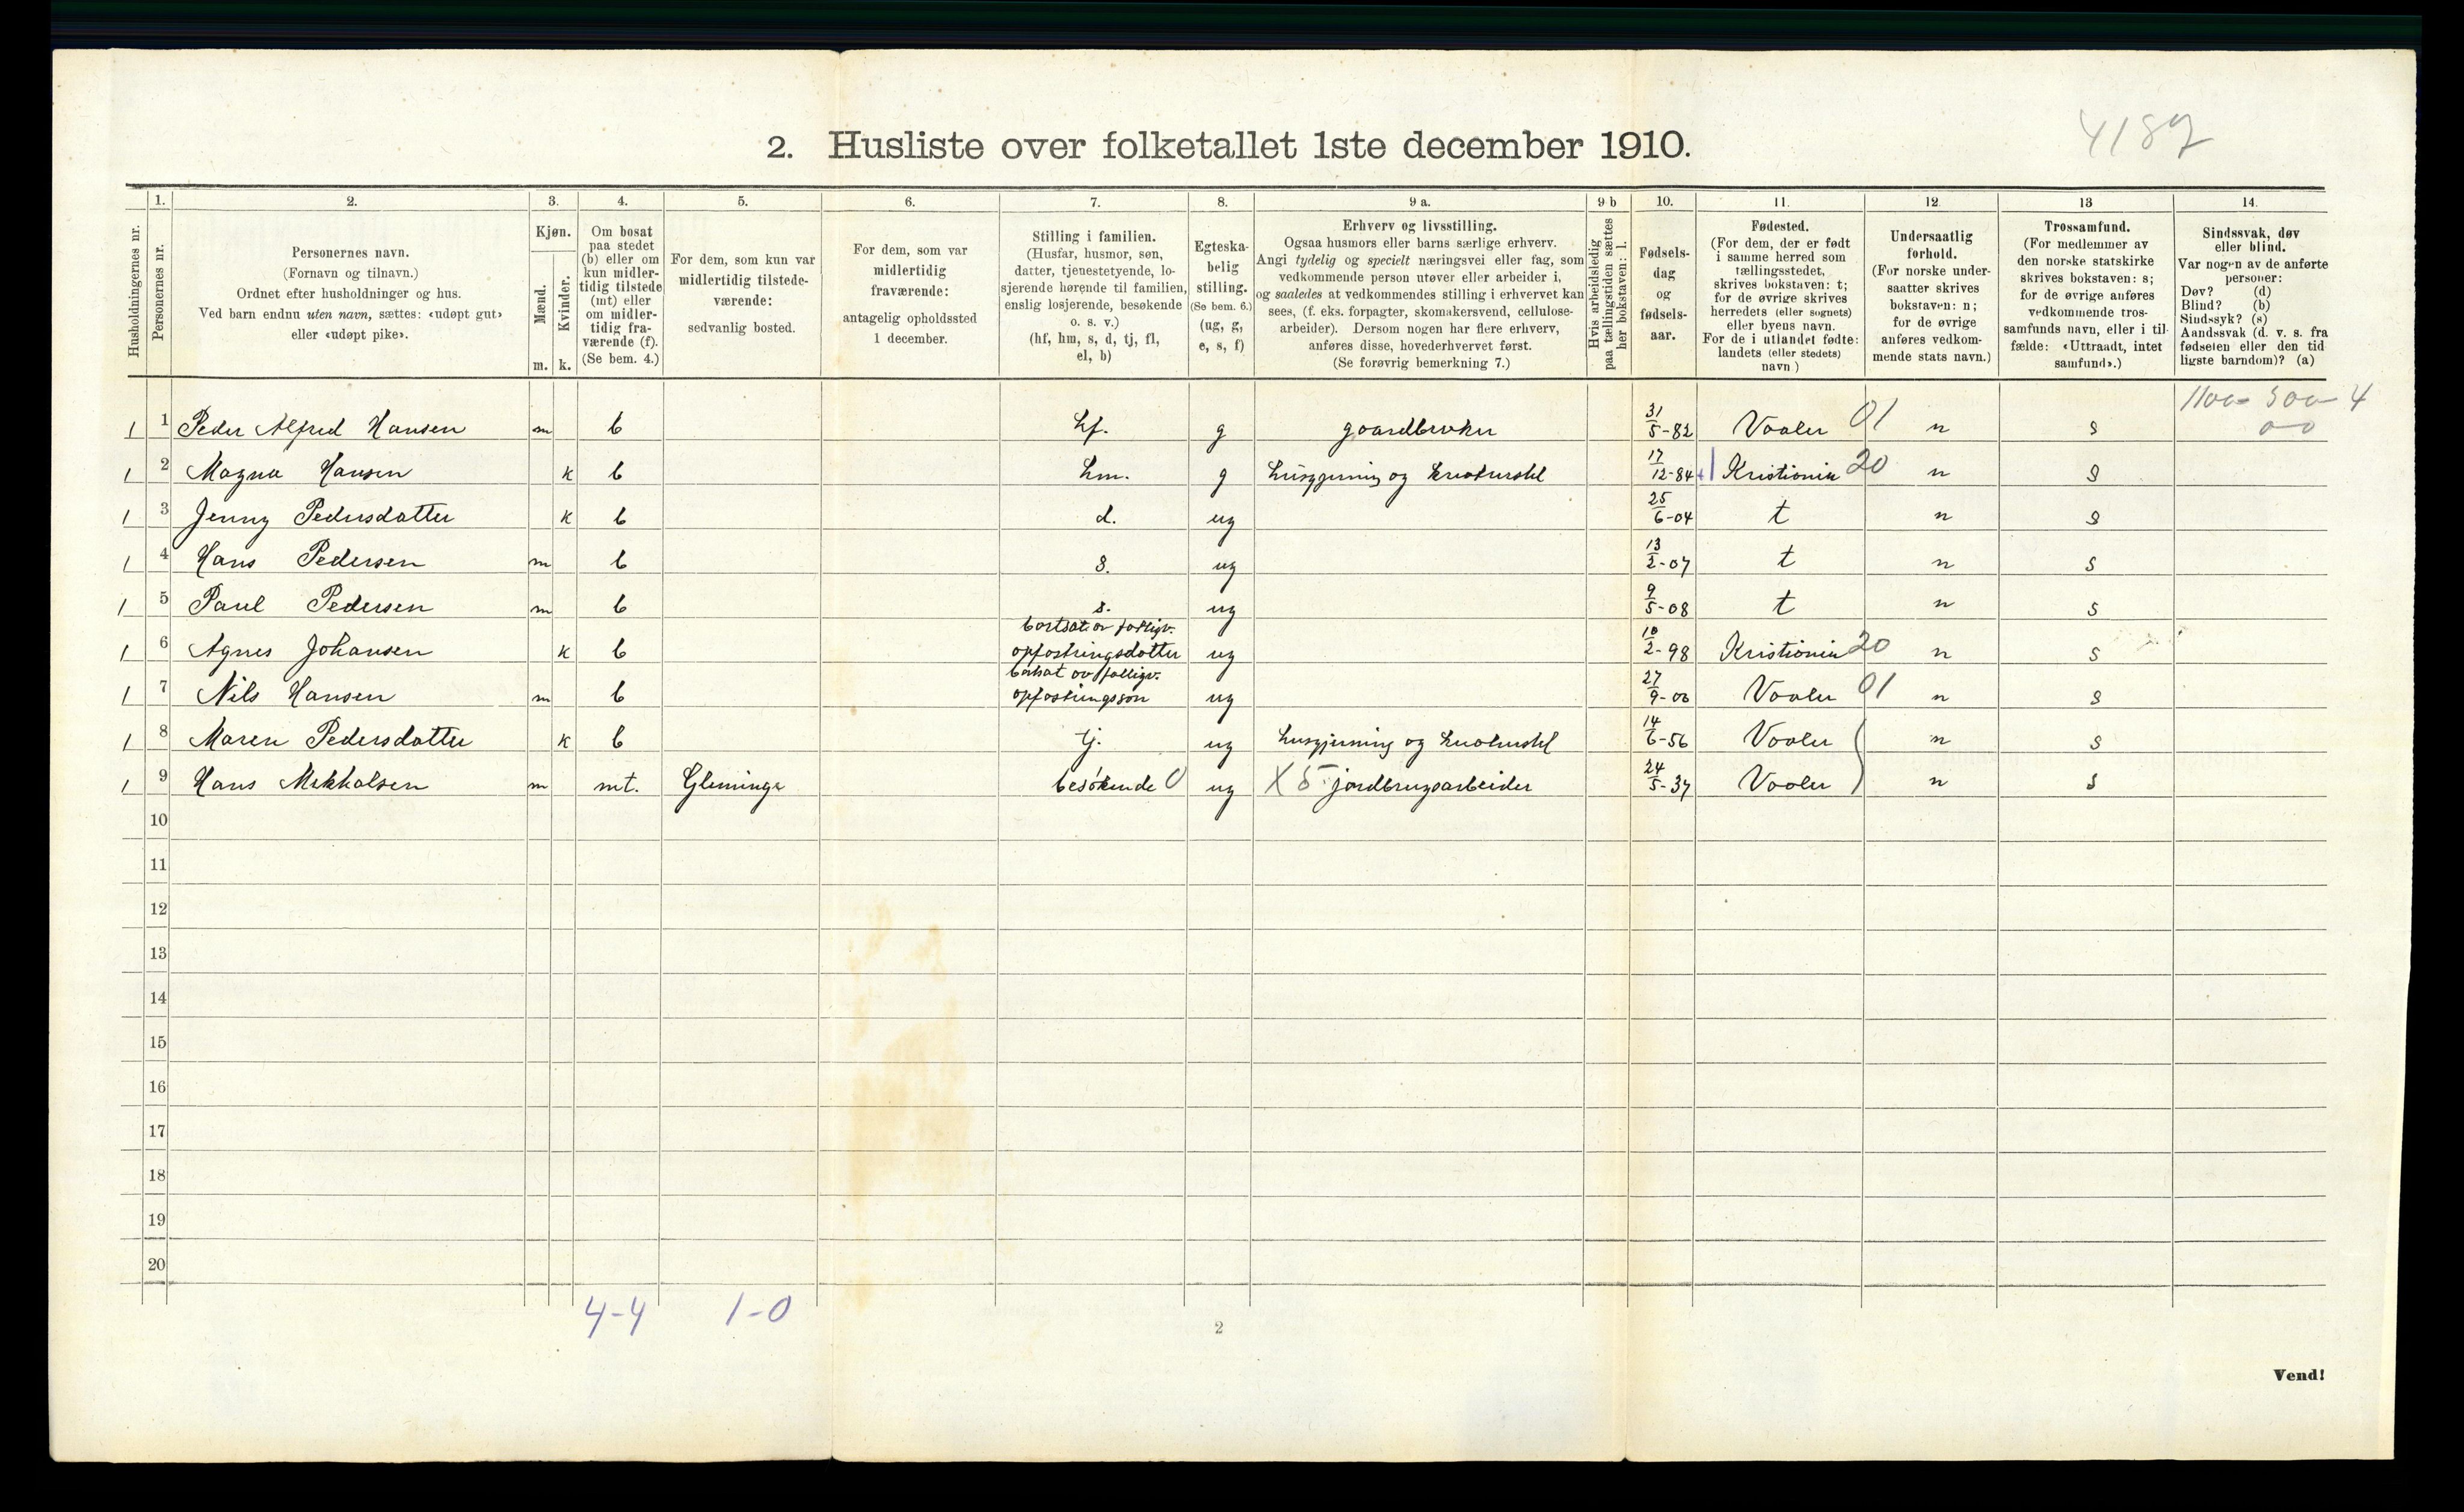 4187
2. Husliste over folketallet 1ste december 1910.
1. 2. 3. 4. 5. 6. 7. 8. 9 a. 9 b 10. 11. 12. 13 14.
Husholdningernes nr.
Personernes nr.
Personernes navn.
(Fornavn og tilnavn.)
Ordnet efter husholdninger og hus.
Ved barn endnu uten navn, sættes: «udøpt gut»
eller «udøpt pike».
Kjøn.
Mænd.
Kvinder.
m. k.
Om bosat
paa stedet
(b) eller om
kun midler-
tidig tilstede
(mt) eller
om midler-
tidig fra-
værende (f).
(Se bem. 4.)
For dem, som kun var
midlertidig tilstede-
værende:
sedvanlig bosted.
For dem, som var
midlertidig
fraværende:
antagelig opholdssted
1 december.
Stilling i familien.
(Husfar, husmor, søn,
datter, tjenestetyende, lo-
sjerende hørende til familien,
enslig losjerende, besøkende
o. s. v.)
(hf, hm, s, d, tj, fl,
el, b)
Egteska-
belig
stilling.
(Se bem. 6.)
(ug, g,
e, s, f)
Erhverv og livsstilling.
Ogsaa husmors eller barns særlige erhverv.
Angi tydelig og specielt næringsvei eller fag, som
vedkommende person utøver eller arbeider i,
og saaledes at vedkommendes stilling i erhvervet kan
sees, (f. eks. forpagter, skomakersvend, cellulose-
arbeider). Dersom nogen har flere erhverv,
anføres disse, hovederhvervet først.
(Se forøvrig bemerkning 7.)
Hvis arbeidsledig
paa tællingstiden sættes
her bokstaven: l.
Fødsels-
dag
og
fødsels-
aar.
Fødested.
(For dem, der er født
i samme herred som
tællingsstedet,
skrives bokstaven: t;
for de øvrige skrives
herredets (eller sognets)
eller byens navn.
For de i utlandet fødte:
landets (eller stedets)
navn.)
Undersaatlig
forhold.
(For norske under-
saatter skrives
bokstaven: n;
for de øvrige
anføres vedkom-
mende stats navn.)
Trossamfund.
(For medlemmer av
den norske statskirke
skrives bokstaven: s;
for de øvrige anføres
vedkommende tros-
samfunds navn, eller i til-
fælde: «Uttraadt, intet
samfund».)
Sindssvak, døv
eller blind.
Var nogen av de anførte
personer:
Døv? (d)
Blind? (b)
Sindssyk? (s)
Aandssvak (d. v. s. fra
fødselen eller den tid
ligste barndom)? (a)
1 1 Peder Alfred Hansen m b hf. g gaardbruker 31/5-82 Vaaler 01 n s
1 2 Magna Hansen k b hm. g husgjerning og kreaturstel 17/12-84 Kristiania 20 n s
1 3 Jenny Pedersdatter k b d. ug 25/6-04 t n s
1 4 Hans Pedersen m b s. ug 13/2-07 t n s
1 5 Paul Pedersen m b s. ug 9/5-08 t n s
bortsat av fattigv.
1 6 Agnes Johansen k b opfostringsdatter ug 10/2-98 Kristiania 20 n s
bortsat av fattigv.
1 7 Nils Hansen m b opfostringsson ug 27/9-00 Vaaler 01 n s
1 8 Maren Pedersdatter k b tj. ug husgjerning og kreaturstel 14/6-56 Vaaler n s
1 9 Hans Mikkalsen m mt. Glemminge besøkende 0 ug X 5 jordbrugsarbeider 24/5-37 Vaaler n s
10
11
12
13
14
15
16
17
18
19
20
4-4 1-0
2
Vend!